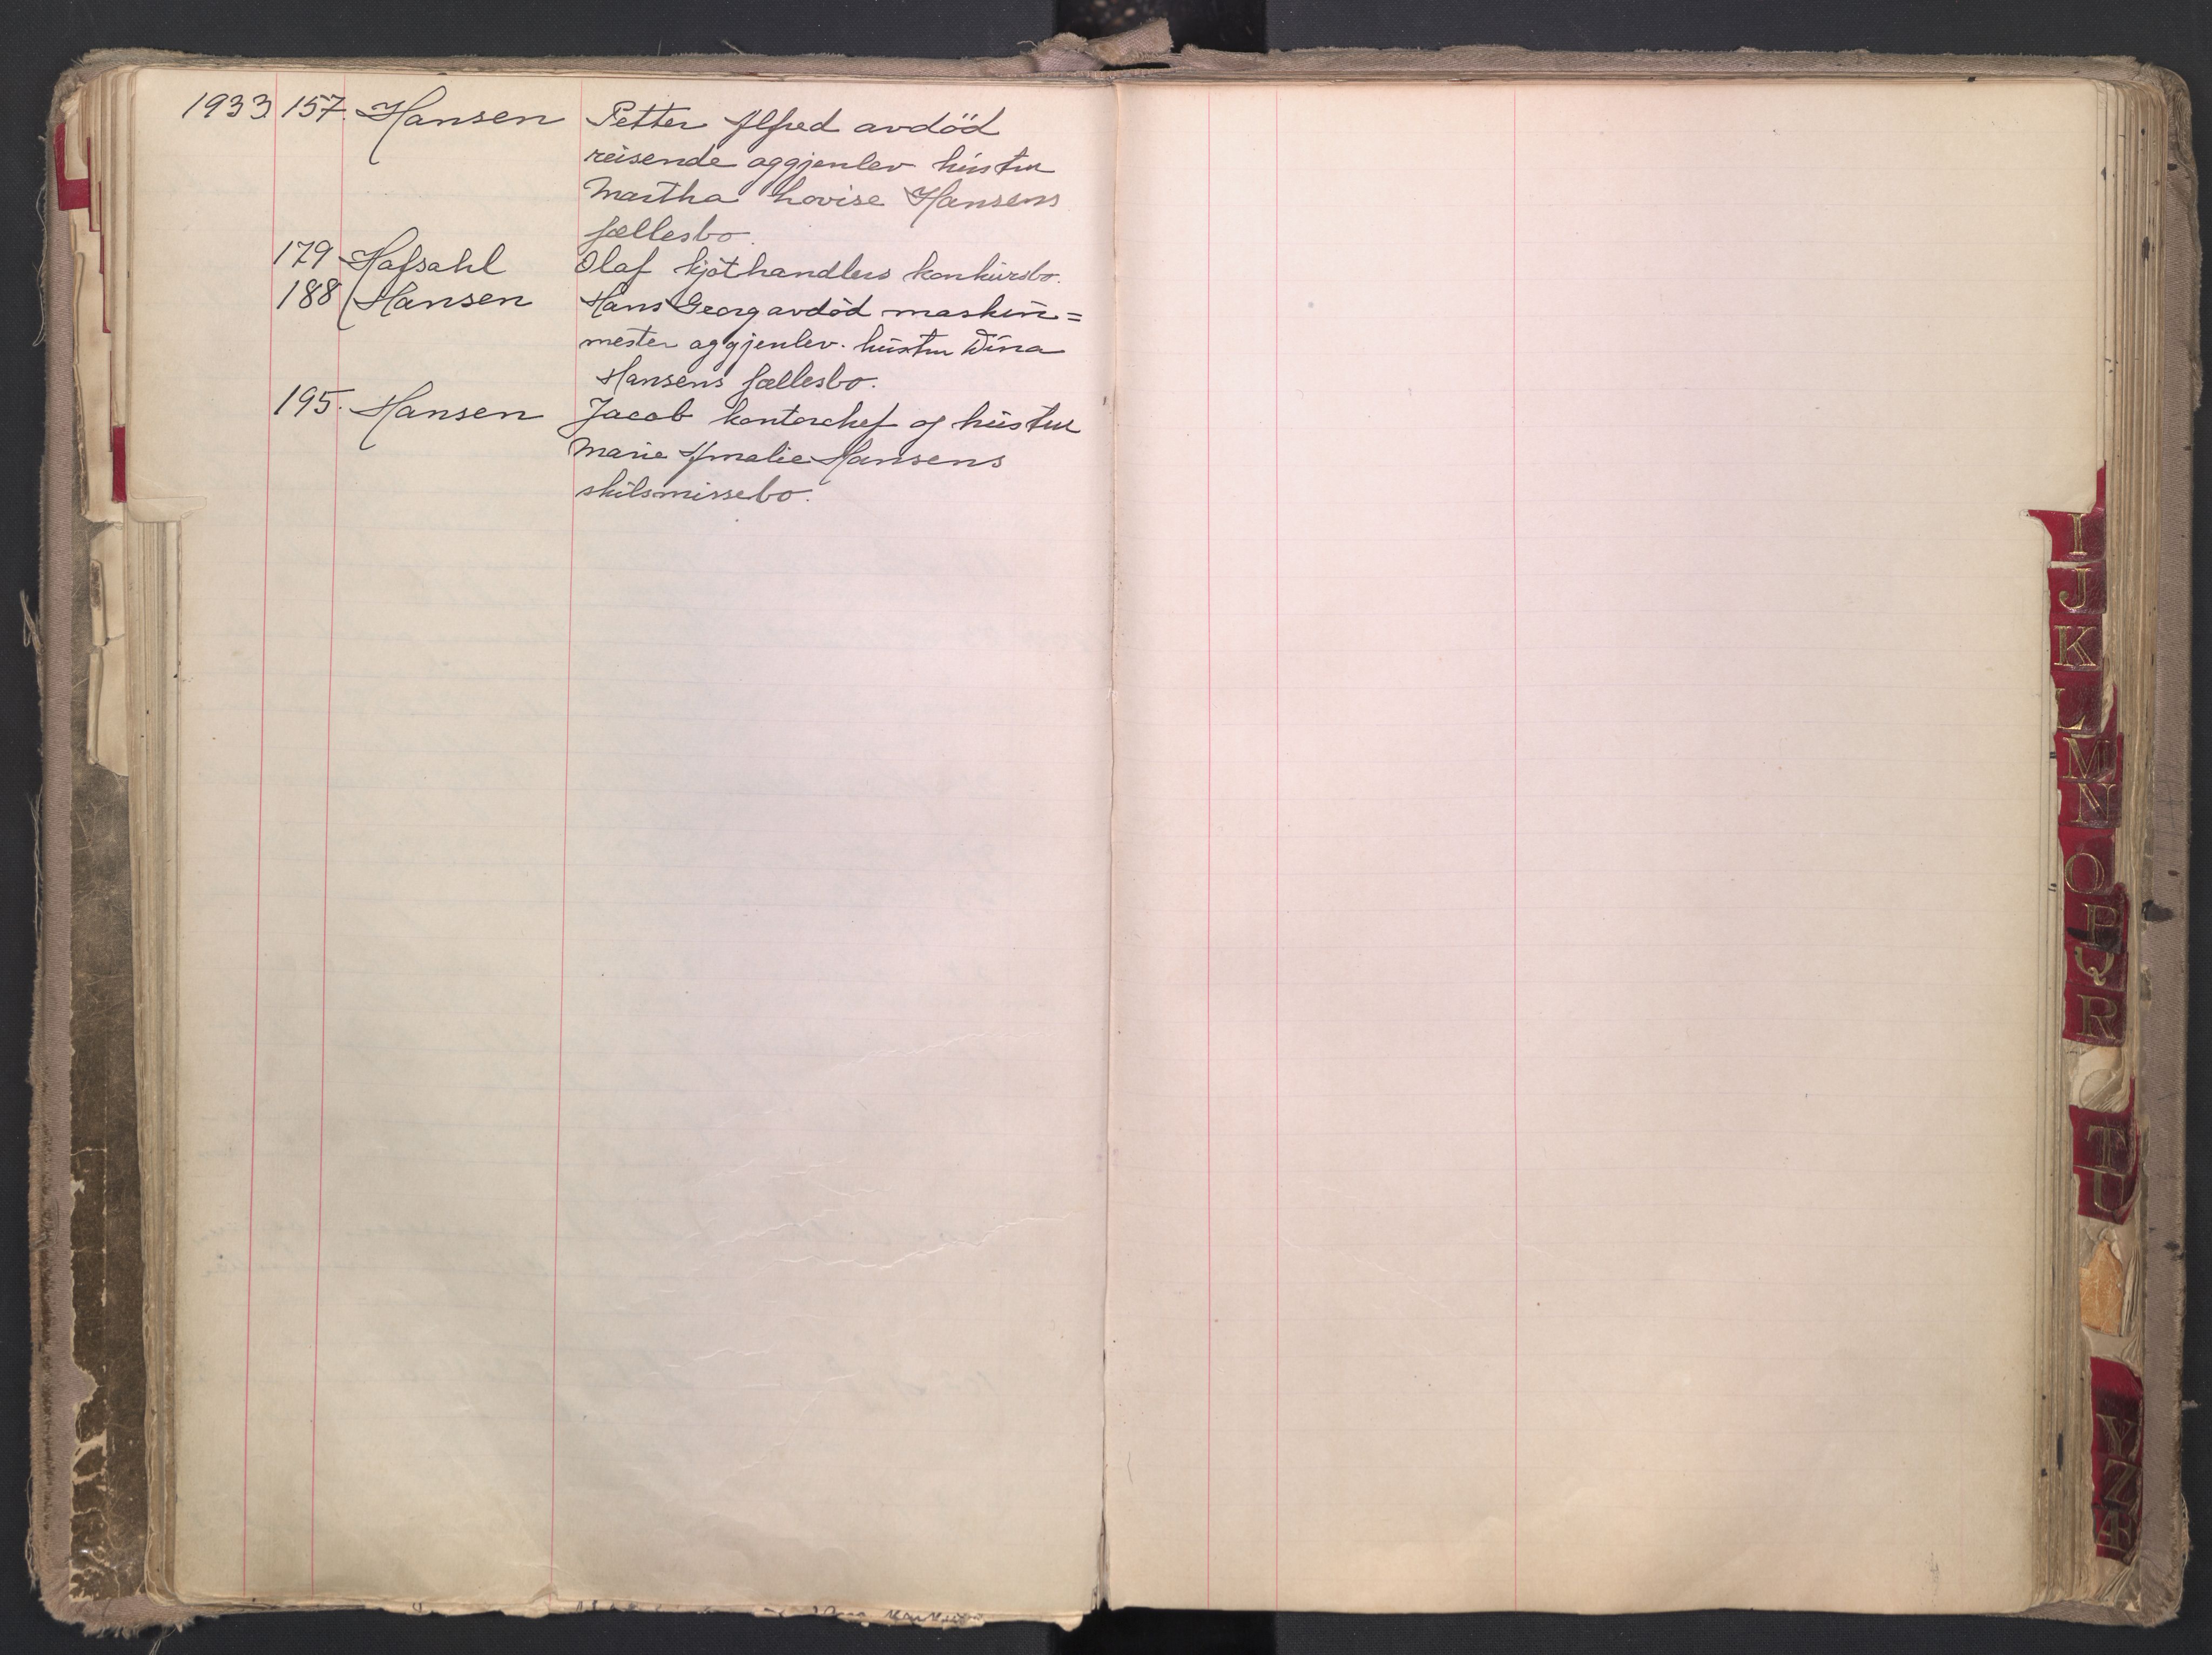 1933 157. Hansen Petter Alfred avdöd
reisende og gjenlev hustru
Martha Lovise Hansens
fællesbo.
179 Hafsahl Olaf kjöthandlers konkursbo.
188 Hansen Hans Georg avdöd maskin=
mester og gjenlev. hustru Dina
Hansens fællesbo.
195. Hansen Jacob kontorchef og hustru
Marie Amalie Hansens
skilsmissebo.
I
J
K
L
M
N
O
P
Q
R
T
U
Y
Z